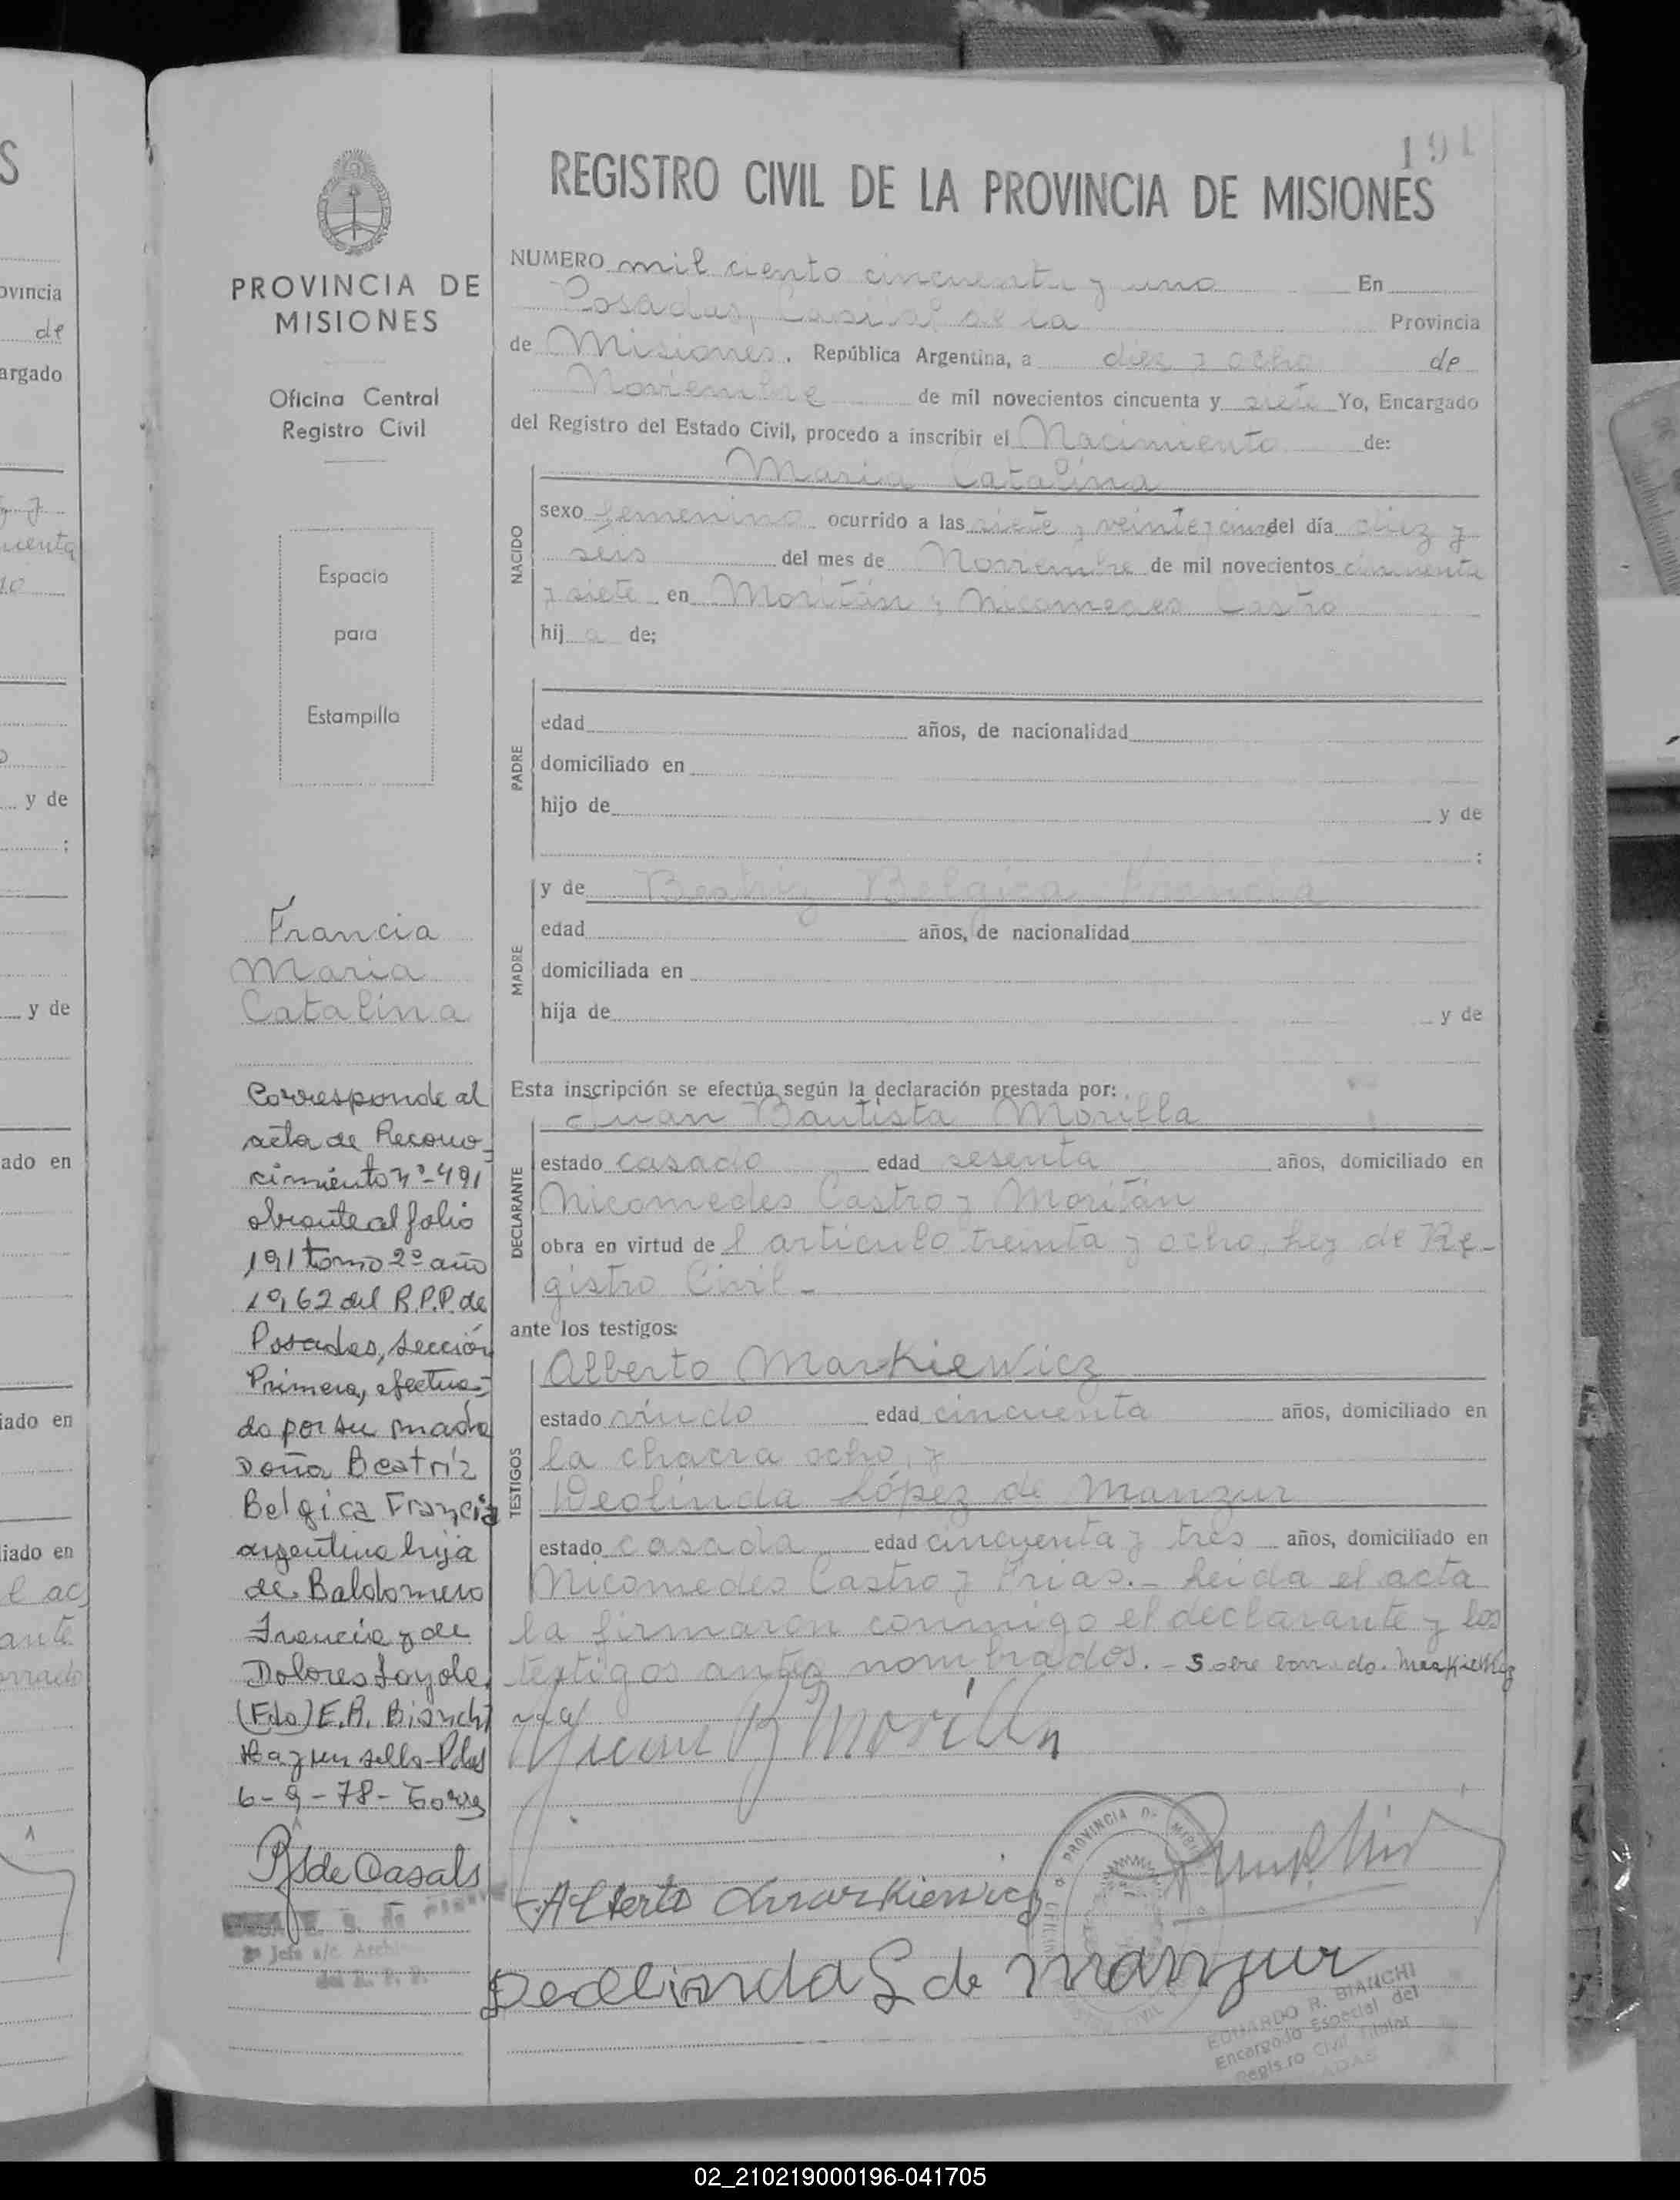 191
REGISTRO CIVIL DE LA PROVINCIA DE MISIONES
PROVINCIA DE
MISIONES
Oficina Central
Registro Civil
Espacio
para
Estampilla
Francia
Maria
Catalina
Corresponde al
acta de Recono-
cimiento nº 491
obrante al folio
191 tomo 2º año
1962 del R.P.P. de
Posadas, sección
Primera, efectua-
do por su madre
Doña Beatriz
Belgica Francia
argentina hija
de Baldomero
Francia y de
Dolores Loyola.
(Fdo) E.R. Bianchi
Hay un sello-Pdas
6-9-78-
de Casals
2º Jefe a/c. Archi
del R. P. P.
NUMERO mil ciento cincuenta y uno En
Posadas, Capital de la Provincia
de Misiones. República Argentina, a diez y ocho de
Noviembre de mil novecientos cincuenta y siete Yo, Encargado
del Registro del Estado Civil, procedo a inscribir el Nacimiento de:
Maria Catalina
NACIDO
sexo femenino ocurrido a las siete y veinte y cinco del día diez y
seis del mes de Noviembre de mil novecientos cincuenta
y siete en Moritán y Nicomedes Castro
hij a de;
PADRE
edad años, de nacionalidad
domiciliado en
hijo de y de
;
MADRE
y de Beatriz Belgica
edad años, de nacionalidad
domiciliada en
hija de y de
Esta inscripción se efectúa según la declaración prestada por:
Juan Bautista Morilla
DECLARANTE
estado casado edad sesenta años, domiciliado en
Nicomedes Castro y Moritán
obra en virtud de l articulo treinta y ocho, Ley de Re-
gistro Civil -
ante los testigos:
TESTIGOS
Alberto Markiewicz
estado viudo edad cincuenta años, domiciliado en
la chacra ocho, y
Deolinda López de Manzur
estado casada edad cincuenta y tres años, domiciliado en
Nicomedes Castro y Frias.- Leida el acta
la firmaron conmigo el declarante y los
testigos antes nombrados. - Sobre borrado. Markiewicz
vale
Juan B Morilla
Alberto Markiewicz
Deolinda L de Manzur
PROVINCIA DE MISI
EDUARDO R. BIANCHI
Encargado Especial del
Registro Civil Titular
02_210219000196-041705